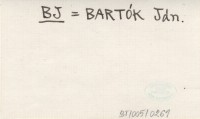 BJ = BARTÓK Ján.
BJ/005/0269